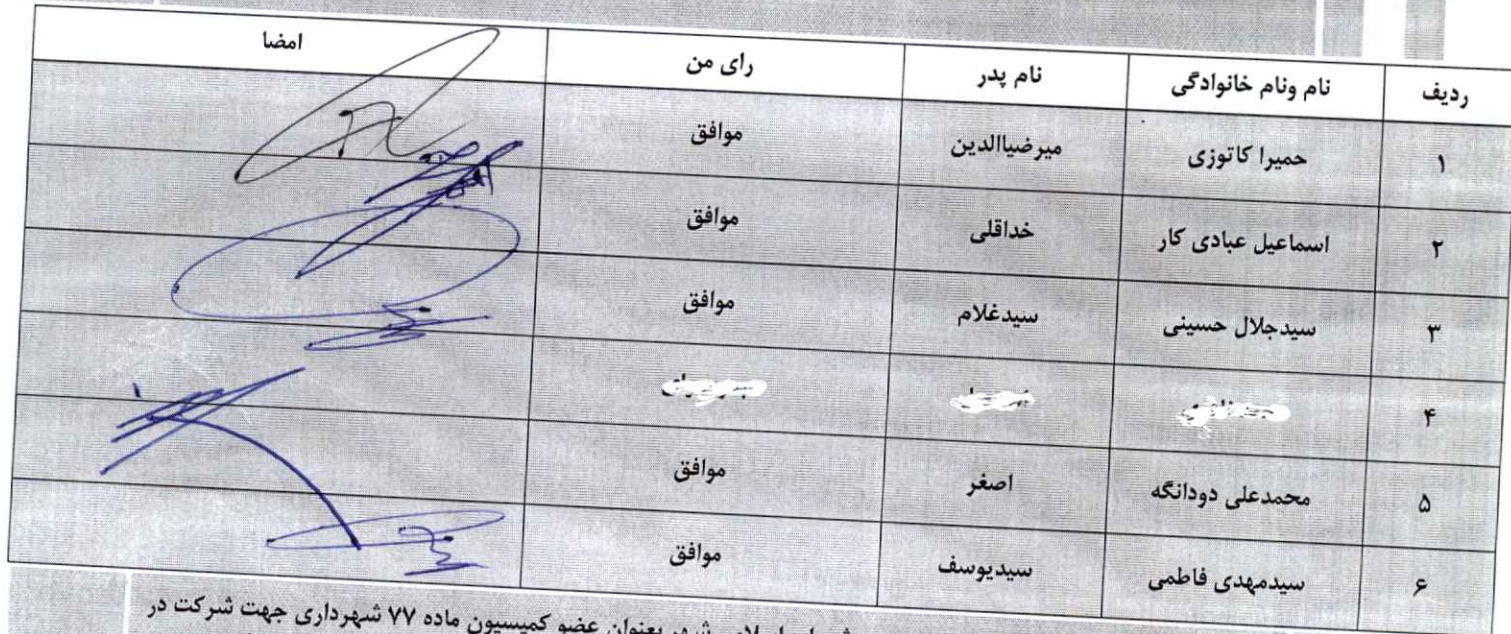 ردیف نام ونام خانوادگی نام پدر رای من امضا
۱ حمیرا کاتوزی میرضیاالدین موافق
۲ اسماعیل عبادی کار خداقلی موافق
۳ سیدجلال حسینی سیدغلام موافق
۴
۵ محمدعلی دودانگه اصغر موافق
۶ سیدمهدی فاطمی سیدیوسف موافق
شهر بعنوان عضو کمیسیون ماده ۷۷ شهرداری جهت شرکت در